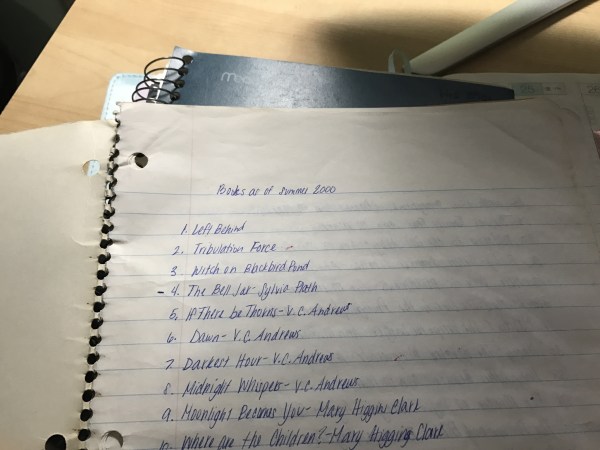 Books as of summer 2000
1. Left Behind
2. Tribulation Force
3. Witch on Blackbird Pond
- 4. The Bell Jar - Sylvia Plath
5. If There be Thorns - V.C. Andrews
6. Dawn - V.C. Andrews
7. Darkest Hour - V.C. Andrews
8. Midnight Whispers - V.C. Andrews
9. Moonlight Becomes You - Mary Higgins Clark
10. Where are the Children? - Mary Higgins Clark